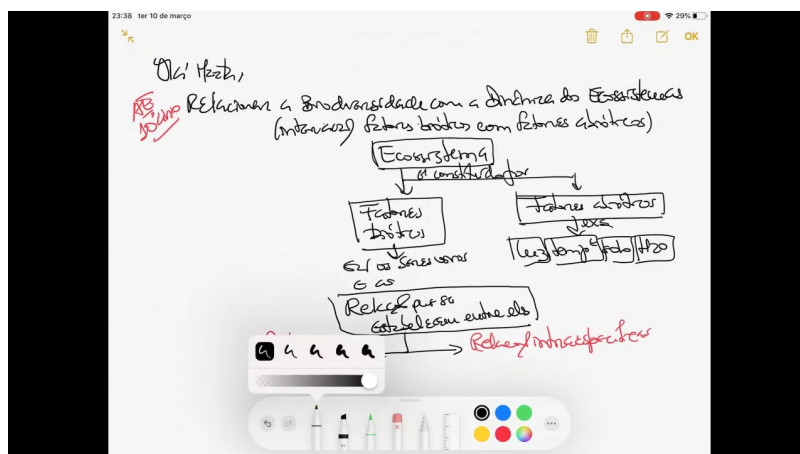 23:38 ter 10 de março
29%
OK
Olá
Relacionar a Biodiversidade com a Dinâmica dos Ecossistemas
(interações) fatores bióticos com fatores abióticos)
Ecossistema
é constituído por
Fatores bióticos
Fatores abióticos
luz temp solo H2O
os seres vivos
E as
Relaç que se
estabelecem entre eles
Relaç intraespecíficas